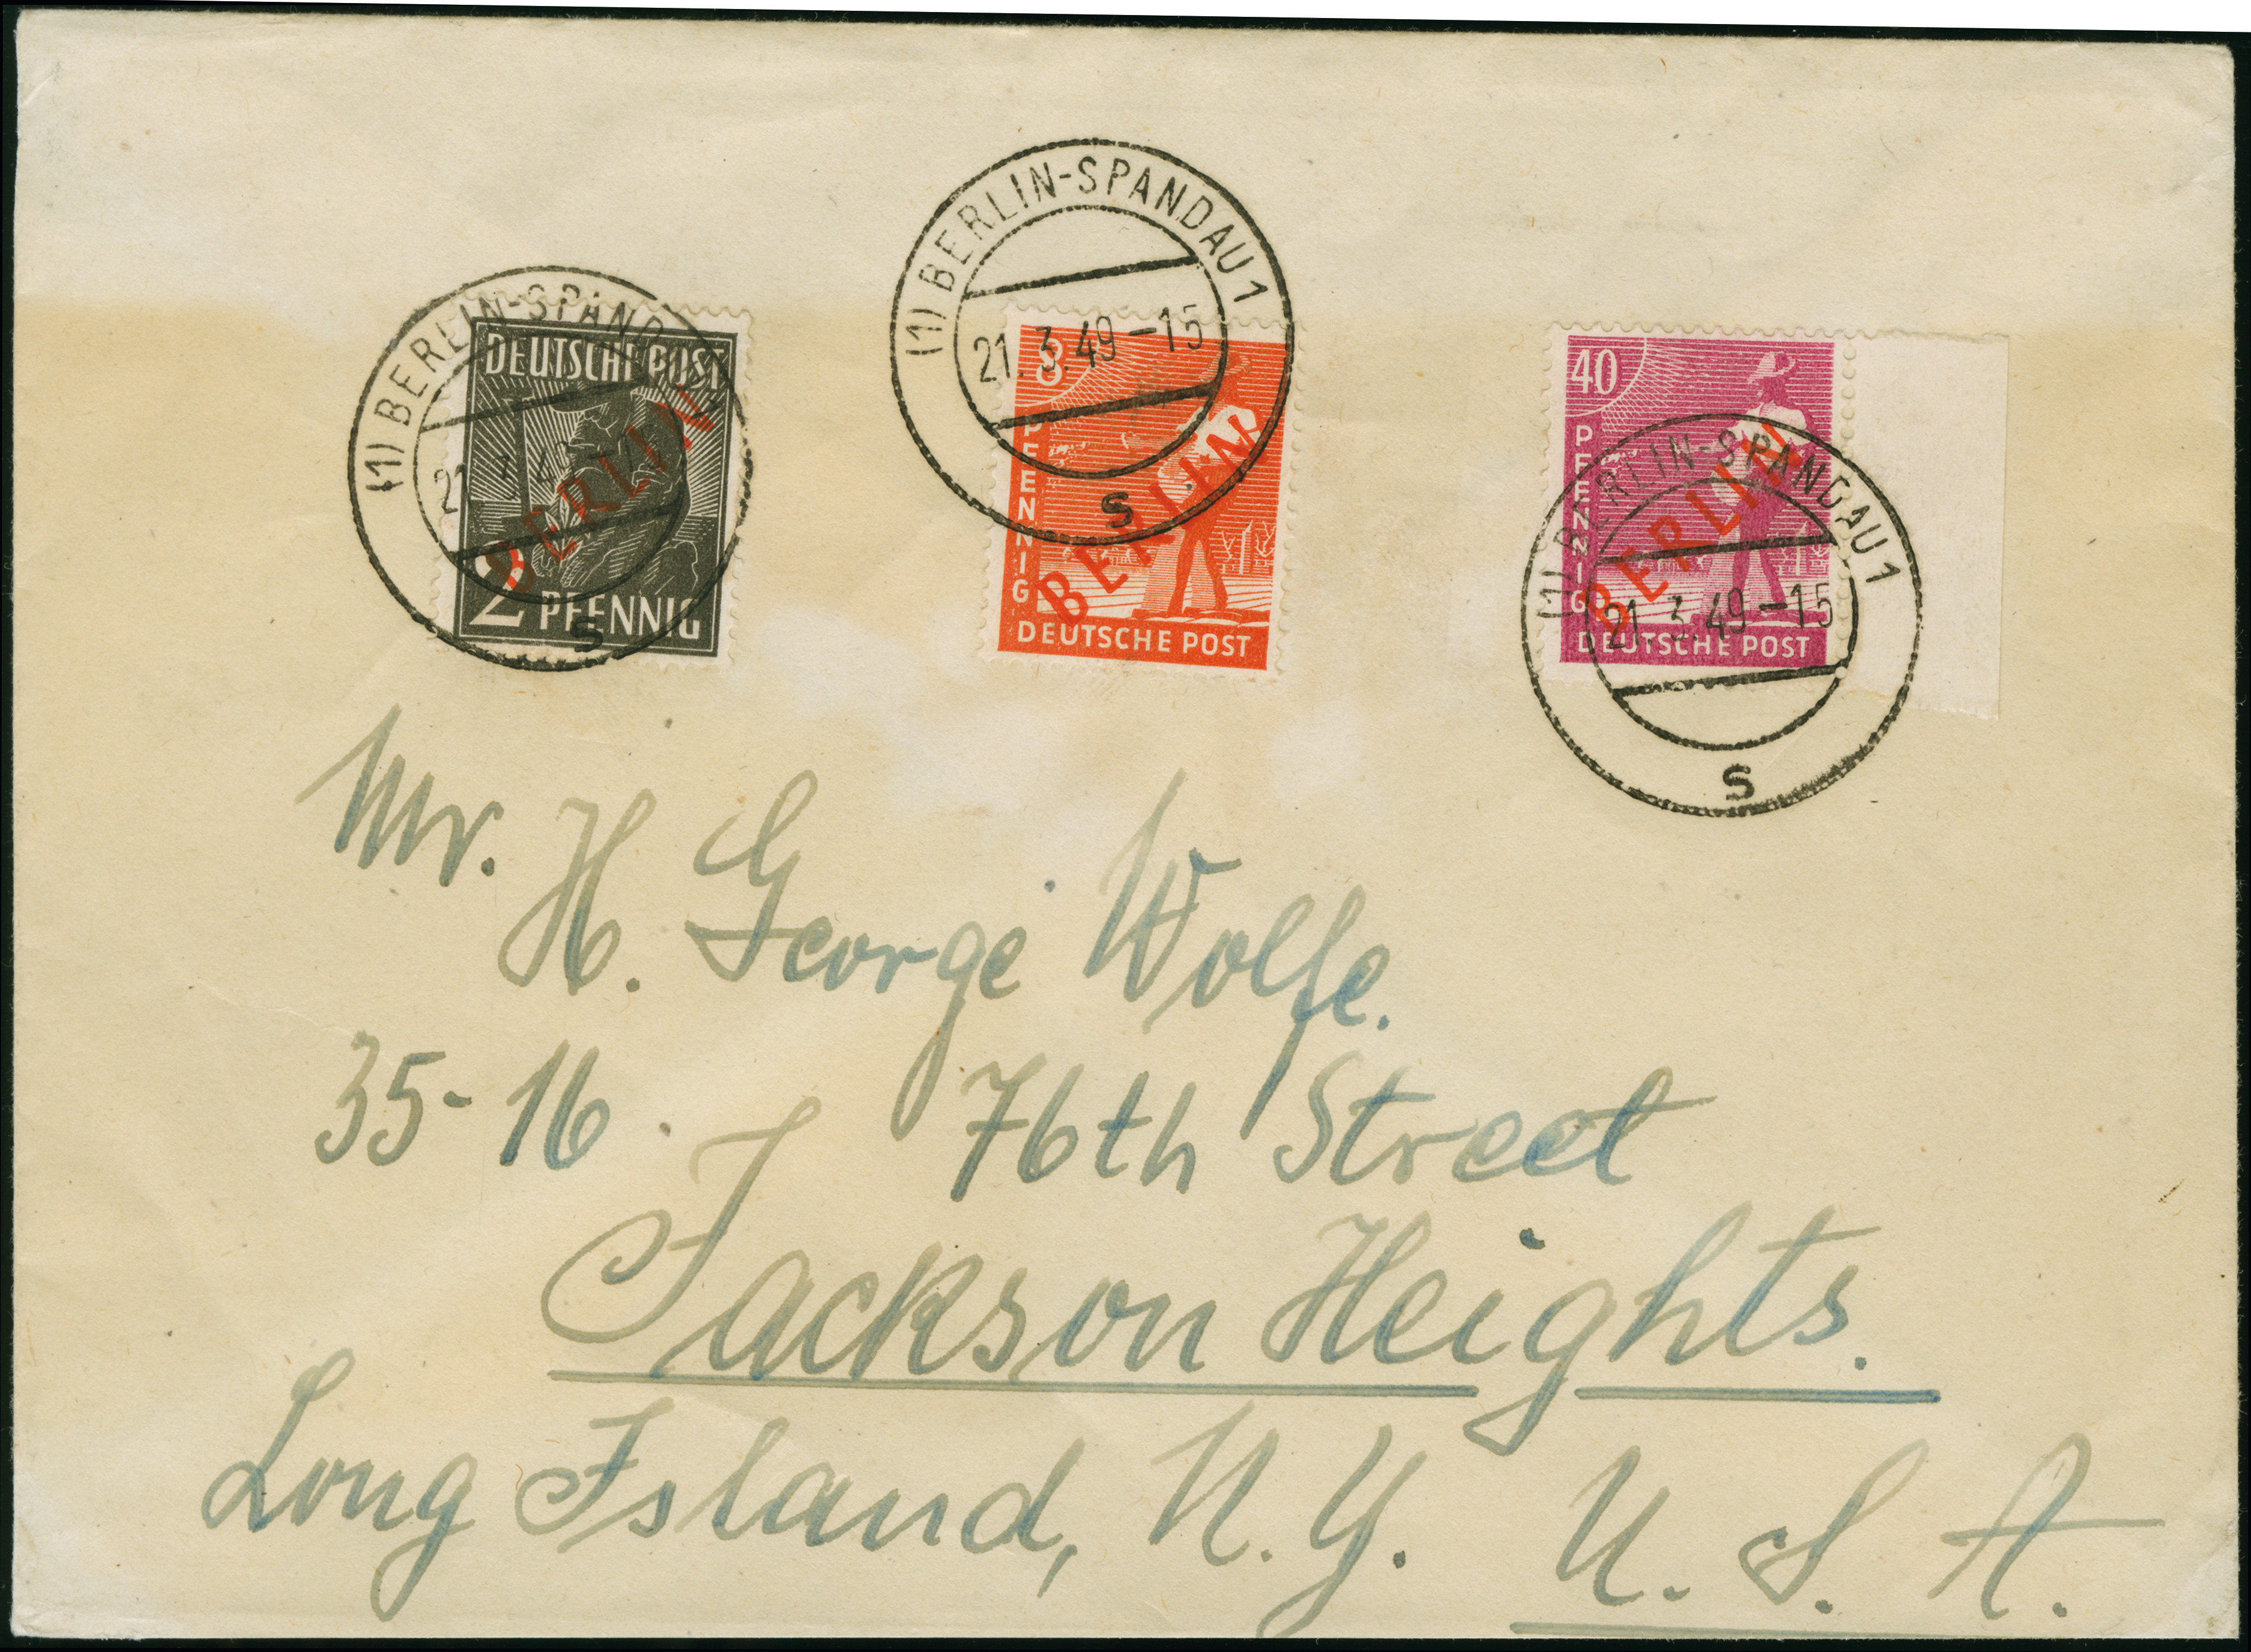 (1) BERLIN-SPANDAU 1
21.3.49-15
s
(1) BERLIN-SPAND
21.3.4
s
DEUTSCHE POST
BERLIN
2 PFENNIG
8
PFENNIG
BERLIN
DEUTSCHE POST
40
PFENNIG
BERLIN
DEUTSCHE POST
(1) BERLIN-SPANDAU 1
21.3.49-15
s
Mr.
H. George Wolfe.
35-16 76th Street
Jackson Heights.
Long Island, N.Y. U.S.A.